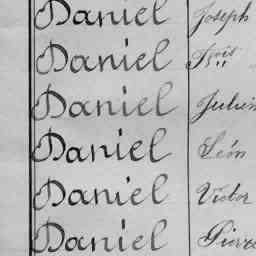 Daniel Joseph
Daniel
Daniel Julien
Daniel Léon
Daniel Victor
Daniel Pierre